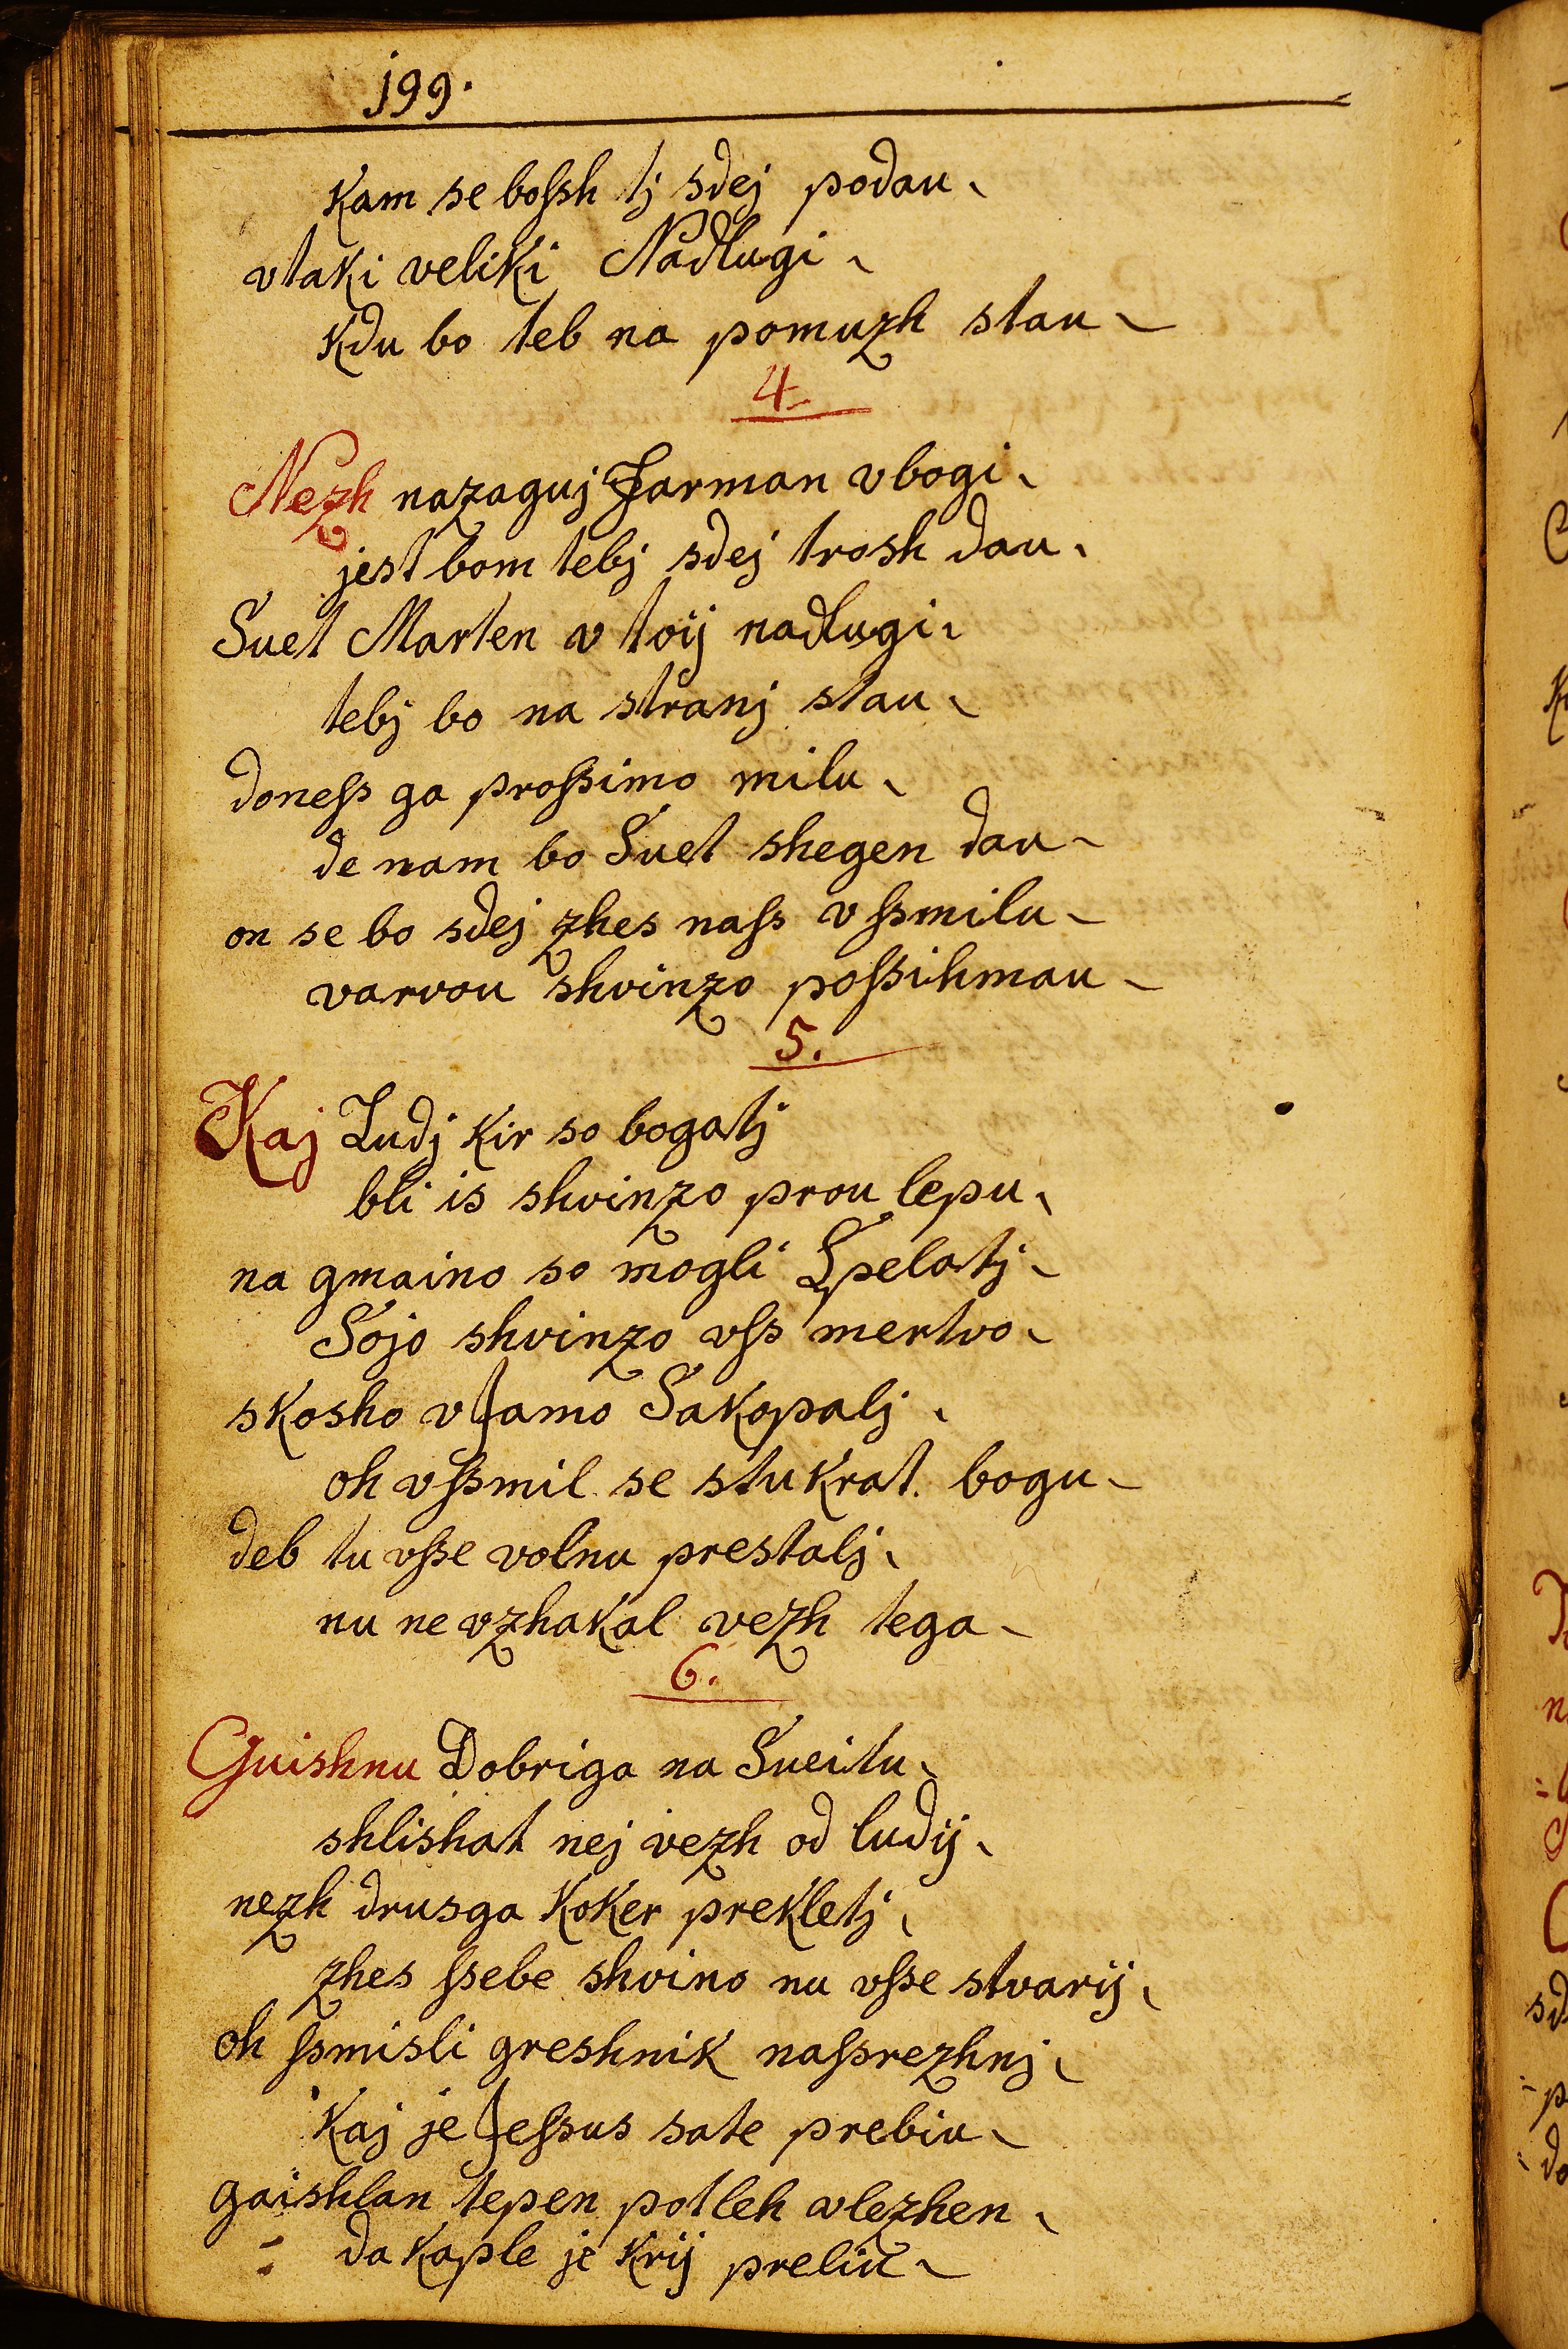 j99.
Kam se boſsh tj sdej podau
vtaki veliki Nadlugi
Kdu bo teb na pomuzh stau
4.
Nezh nazaguj Jarman vbogi
jest bom tebj sdej trosh dau
Suet Marten v toij nadlugi
tebj bo na stranj stau
doneſs ga proſsimo milu
de nam bo Suet shegen dau
on se bo sdej zhes naſs vſsmilu
varvou shvinzo poſsihmau
5.
Kaj Ludj kir so bogatj
bli is shvinzo prou lepu
na gmaino so mogli Spelatj
Sojo shvinzo vſs mertvo
skosho vJamo Sakopalj
oh vſsmil se stukrat bogu
deb tu vſse volnu prestalj
nu ne vzhakal vezh tega
6.
Guishnu Dobriga na Sueitu
shlishat nej vezh od ludij
nezh drusga Koker prekletj
zhes ſsebe shvino nu vſse stvarij
oh ſsmisli greshnik naſsrezhnj
Kaj je Jeſsus sate prebiu
gaishlan tepen potleh vlezhen
da Kaple je Krij preliu